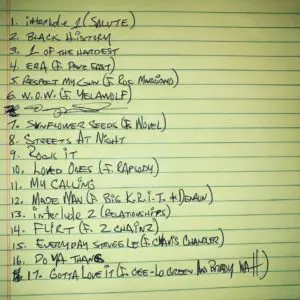 1. interlude 1 (SALUTE)
2. BLACK HISTORY
3. 1 OF THE HARDEST
4. ERA (F. DAVE EAST)
5. RESPECT MY GUN (F. ROC MARCIANO)
6. W.O.W. (F. YELAWOLF)
7. SUNFLOWER SEEDS (F. NOVEL)
8. STREETS AT NIGHT
9. ROCK IT
10. LOVED ONES (F. RAPSODY)
11. MY CALLING
12. MADE MAN (F. BIG K.R.I.T. +
13. interlude 2 (RELATIONSHIPS)
14. FLIRT (F. 2 CHAINZ)
15. EVERYDAY STRUGGLE (F. CHAVIS CHANDLER)
16. DO YA THANG
17. GOTTA LOVE IT (F. CEE-LO GREEN AND BRADY WATT)